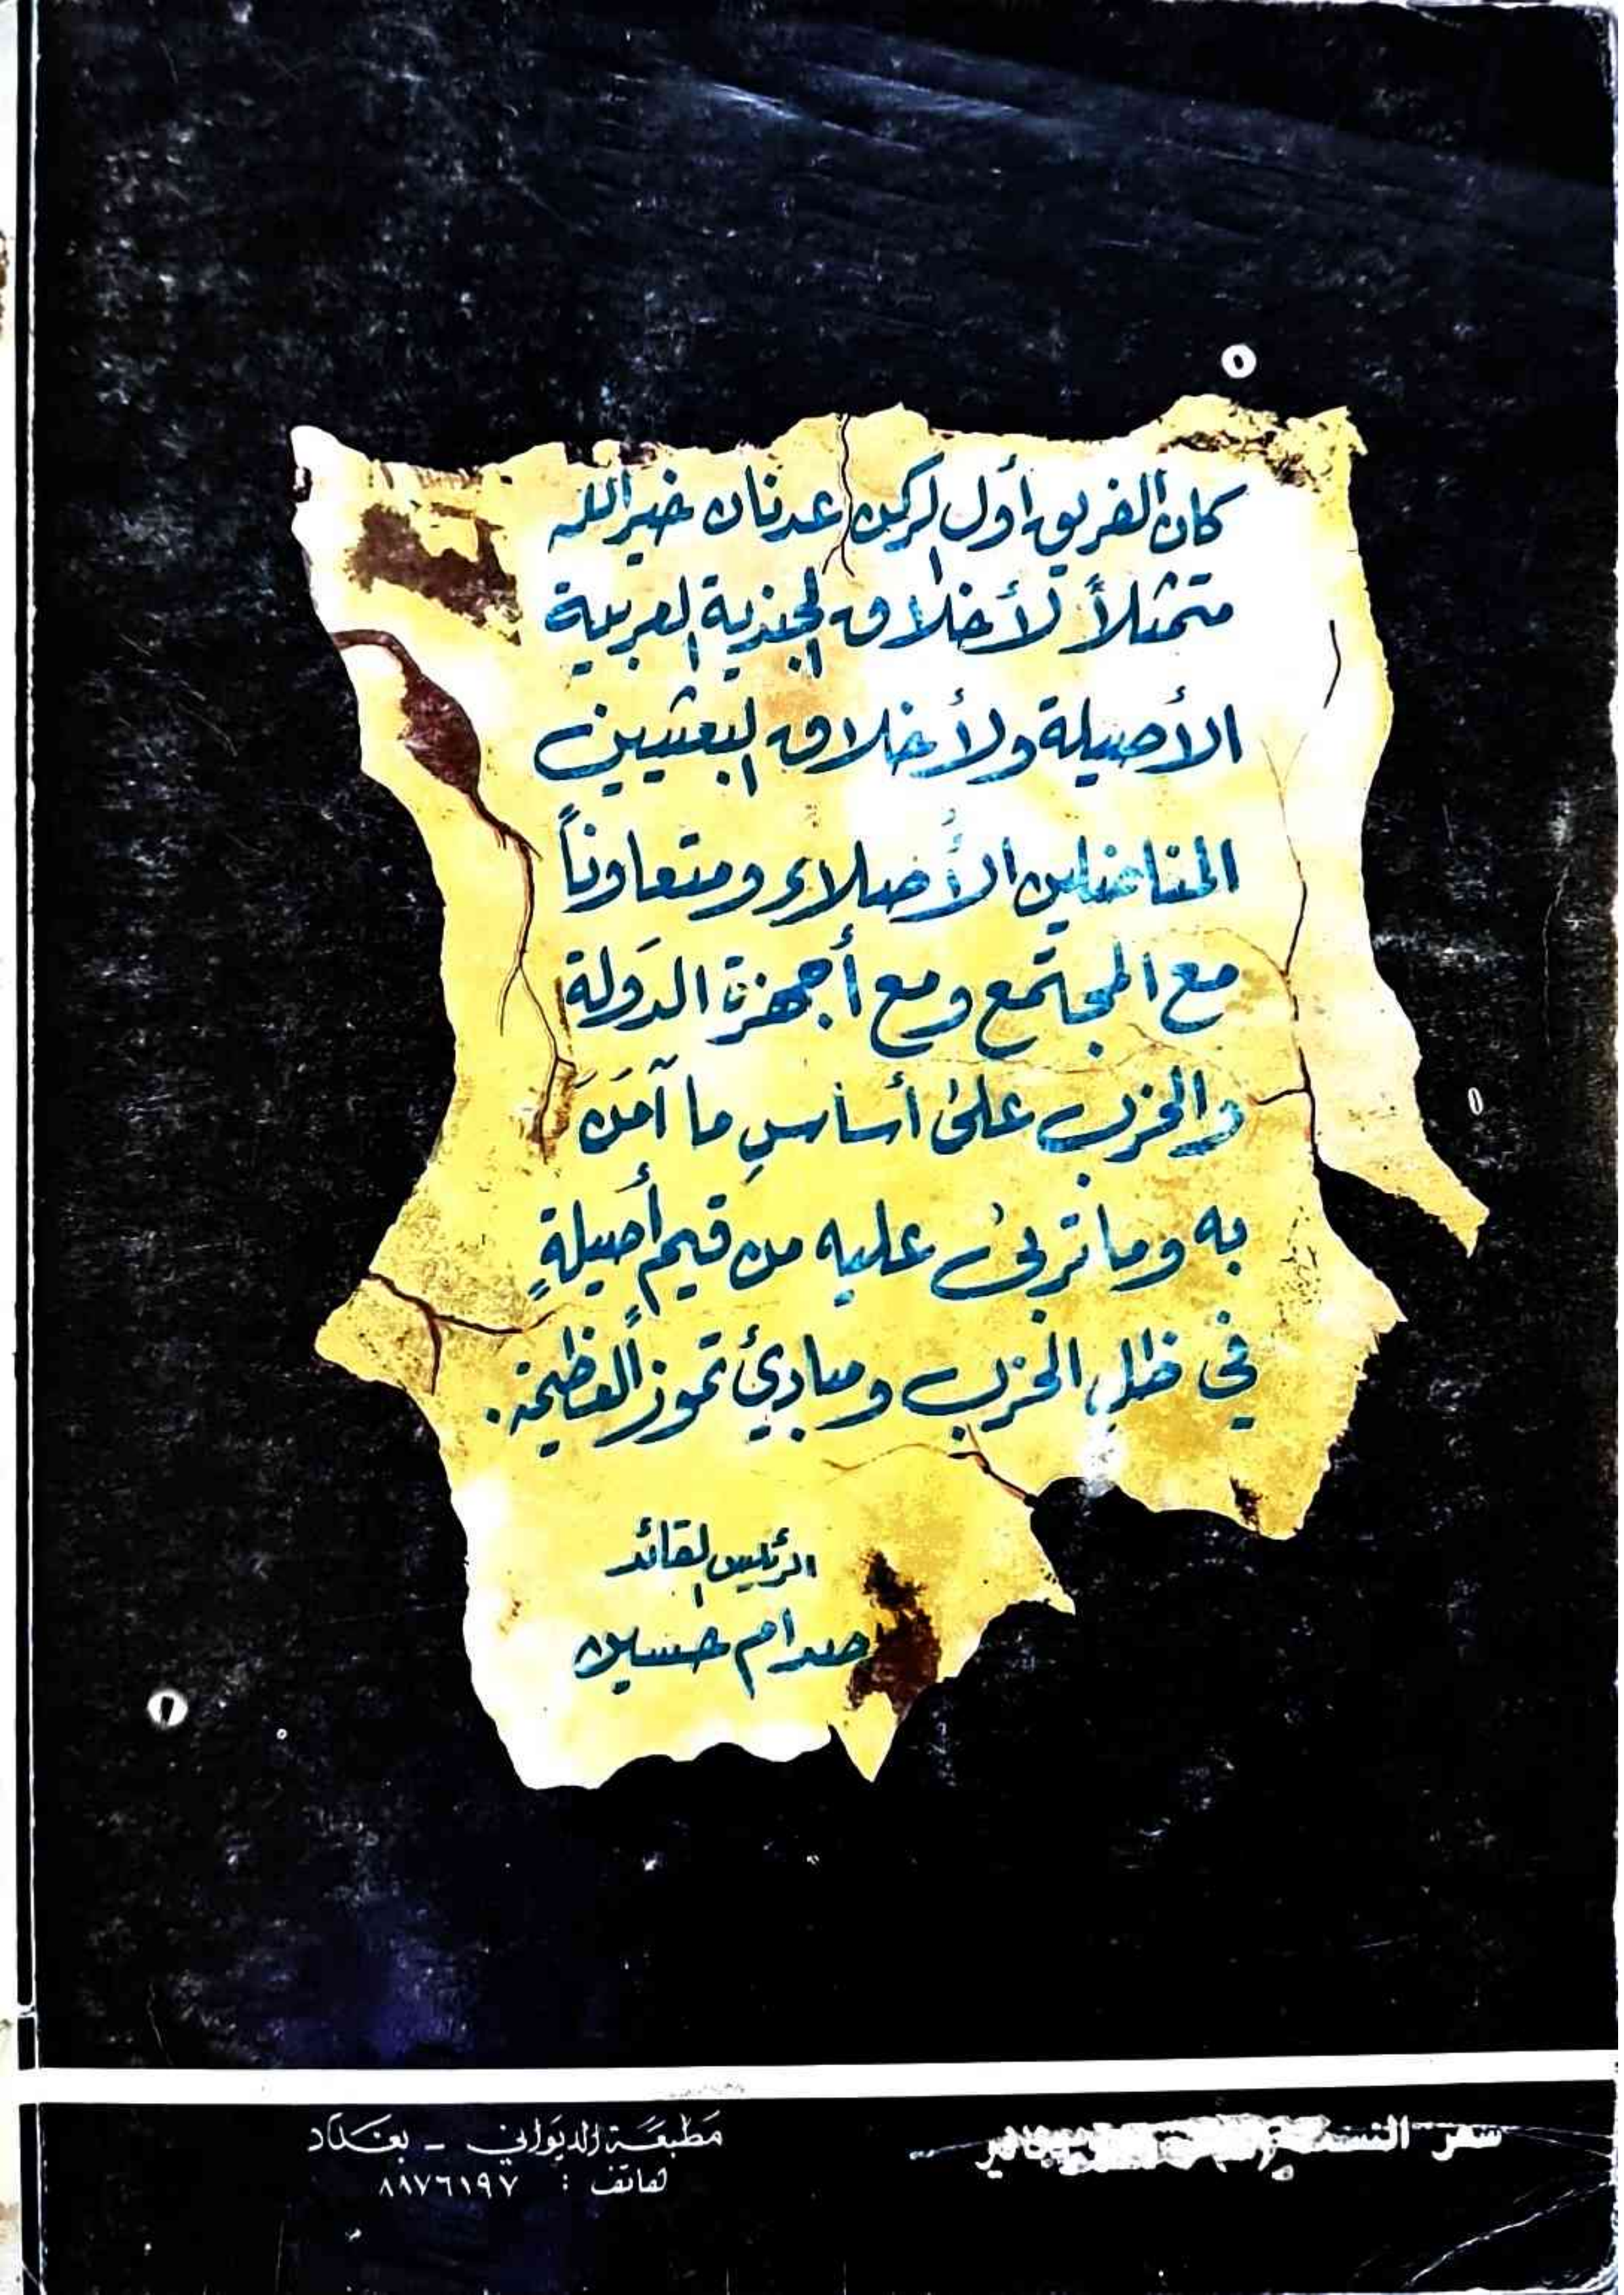 كان الفريق أول الركن عدنان خير الله
متمثلاً لأخلاق الجندية العربية
الأصيلة ولأخلاق البعثيين
المناضلين الأُصلاء ومتعاوناً
مع المجتمع ومع أجهزة الدَولة
والحزب علىٰ أساسِ ما آمَنَ
به وما تربىٰ عليه من قيم أصيلةٍ
في ظل الحزب ومبادئ تموز العظيمة.
الرئيس القائد
صدام حسين
سعر النسخة
مَطبعَة الديوَاني - بغداد
هاتف : ٨٨٧٦١٩٧